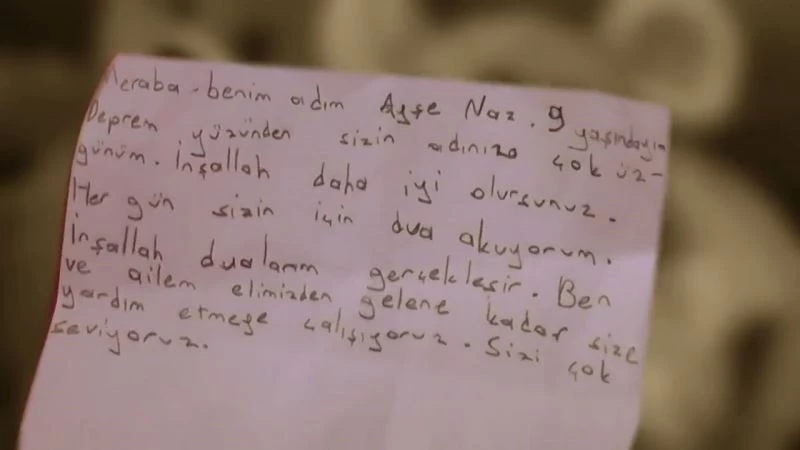 Meraba. benim adım Ayşe Naz. 9 yaşındayım
Deprem yüzünden sizin adınıza çok üz-
günüm. İnşallah daha iyi olursunuz.
Her gün sizin için dua akuyorum.
İnşallah dualarım gerçekleşir. Ben
ve ailem elimizden gelene kadar size
yardım etmeğe çalışıyoruz. Sizi çok
seviyoruz.